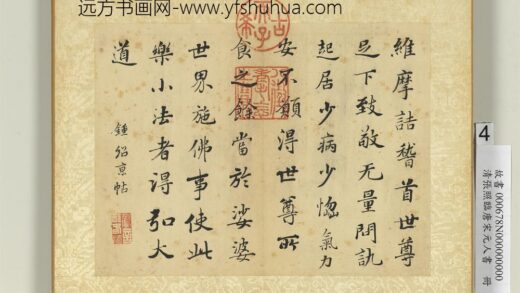 远方书画网- www.yfshuhua.com
維摩詰稽首世尊
足下致敬无量問訊
起居少病少惱氣力
安不願得世尊所
食之餘當於娑婆
世界施佛事使此
樂小法者得弘大
道
鍾紹京帖
4
故書 000678N000000000
清張照臨唐宋元人書 冊